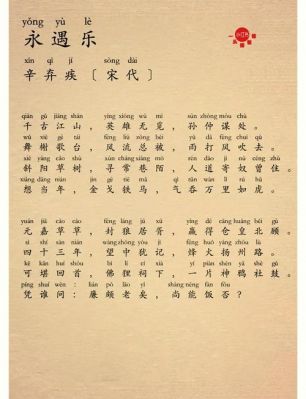 yǒng yù lè
永遇乐
xīn qì jí sòng dài
辛弃疾〔宋代〕
qiān gǔ jiāng shān yīng xióng wú mì sūn zhòng móu chù
千古江山，英雄无觅，孙仲谋处。
wǔ xiè gē tái fēng liú zǒng bèi yǔ dǎ fēng chuī qù
舞榭歌台，风流总被，雨打风吹去。
xié yáng cǎo shù xún cháng xiàng mò rén dào jì nú céng zhù
斜阳草树，寻常巷陌，人道寄奴曾住。
xiǎng dāng nián jīn gē tiě mǎ qì tūn wàn lǐ rú hǔ
想当年，金戈铁马，气吞万里如虎。
yuán jiā cǎo cǎo fēng láng jū xū yíng dé cāng huáng běi gù
元嘉草草，封狼居胥，赢得仓皇北顾。
sì shí sān nián wàng zhōng yóu jì fēng huǒ yáng zhōu lù
四十三年，望中犹记，烽火扬州路。
kě kān huí shǒu bì lí cí xià yī piàn shén yā shè gǔ
可堪回首，佛狸祠下，一片神鸦社鼓。
píng shuí wèn lián pō lǎo yǐ shàng néng fàn fǒu
凭谁问：廉颇老矣，尚能饭否？